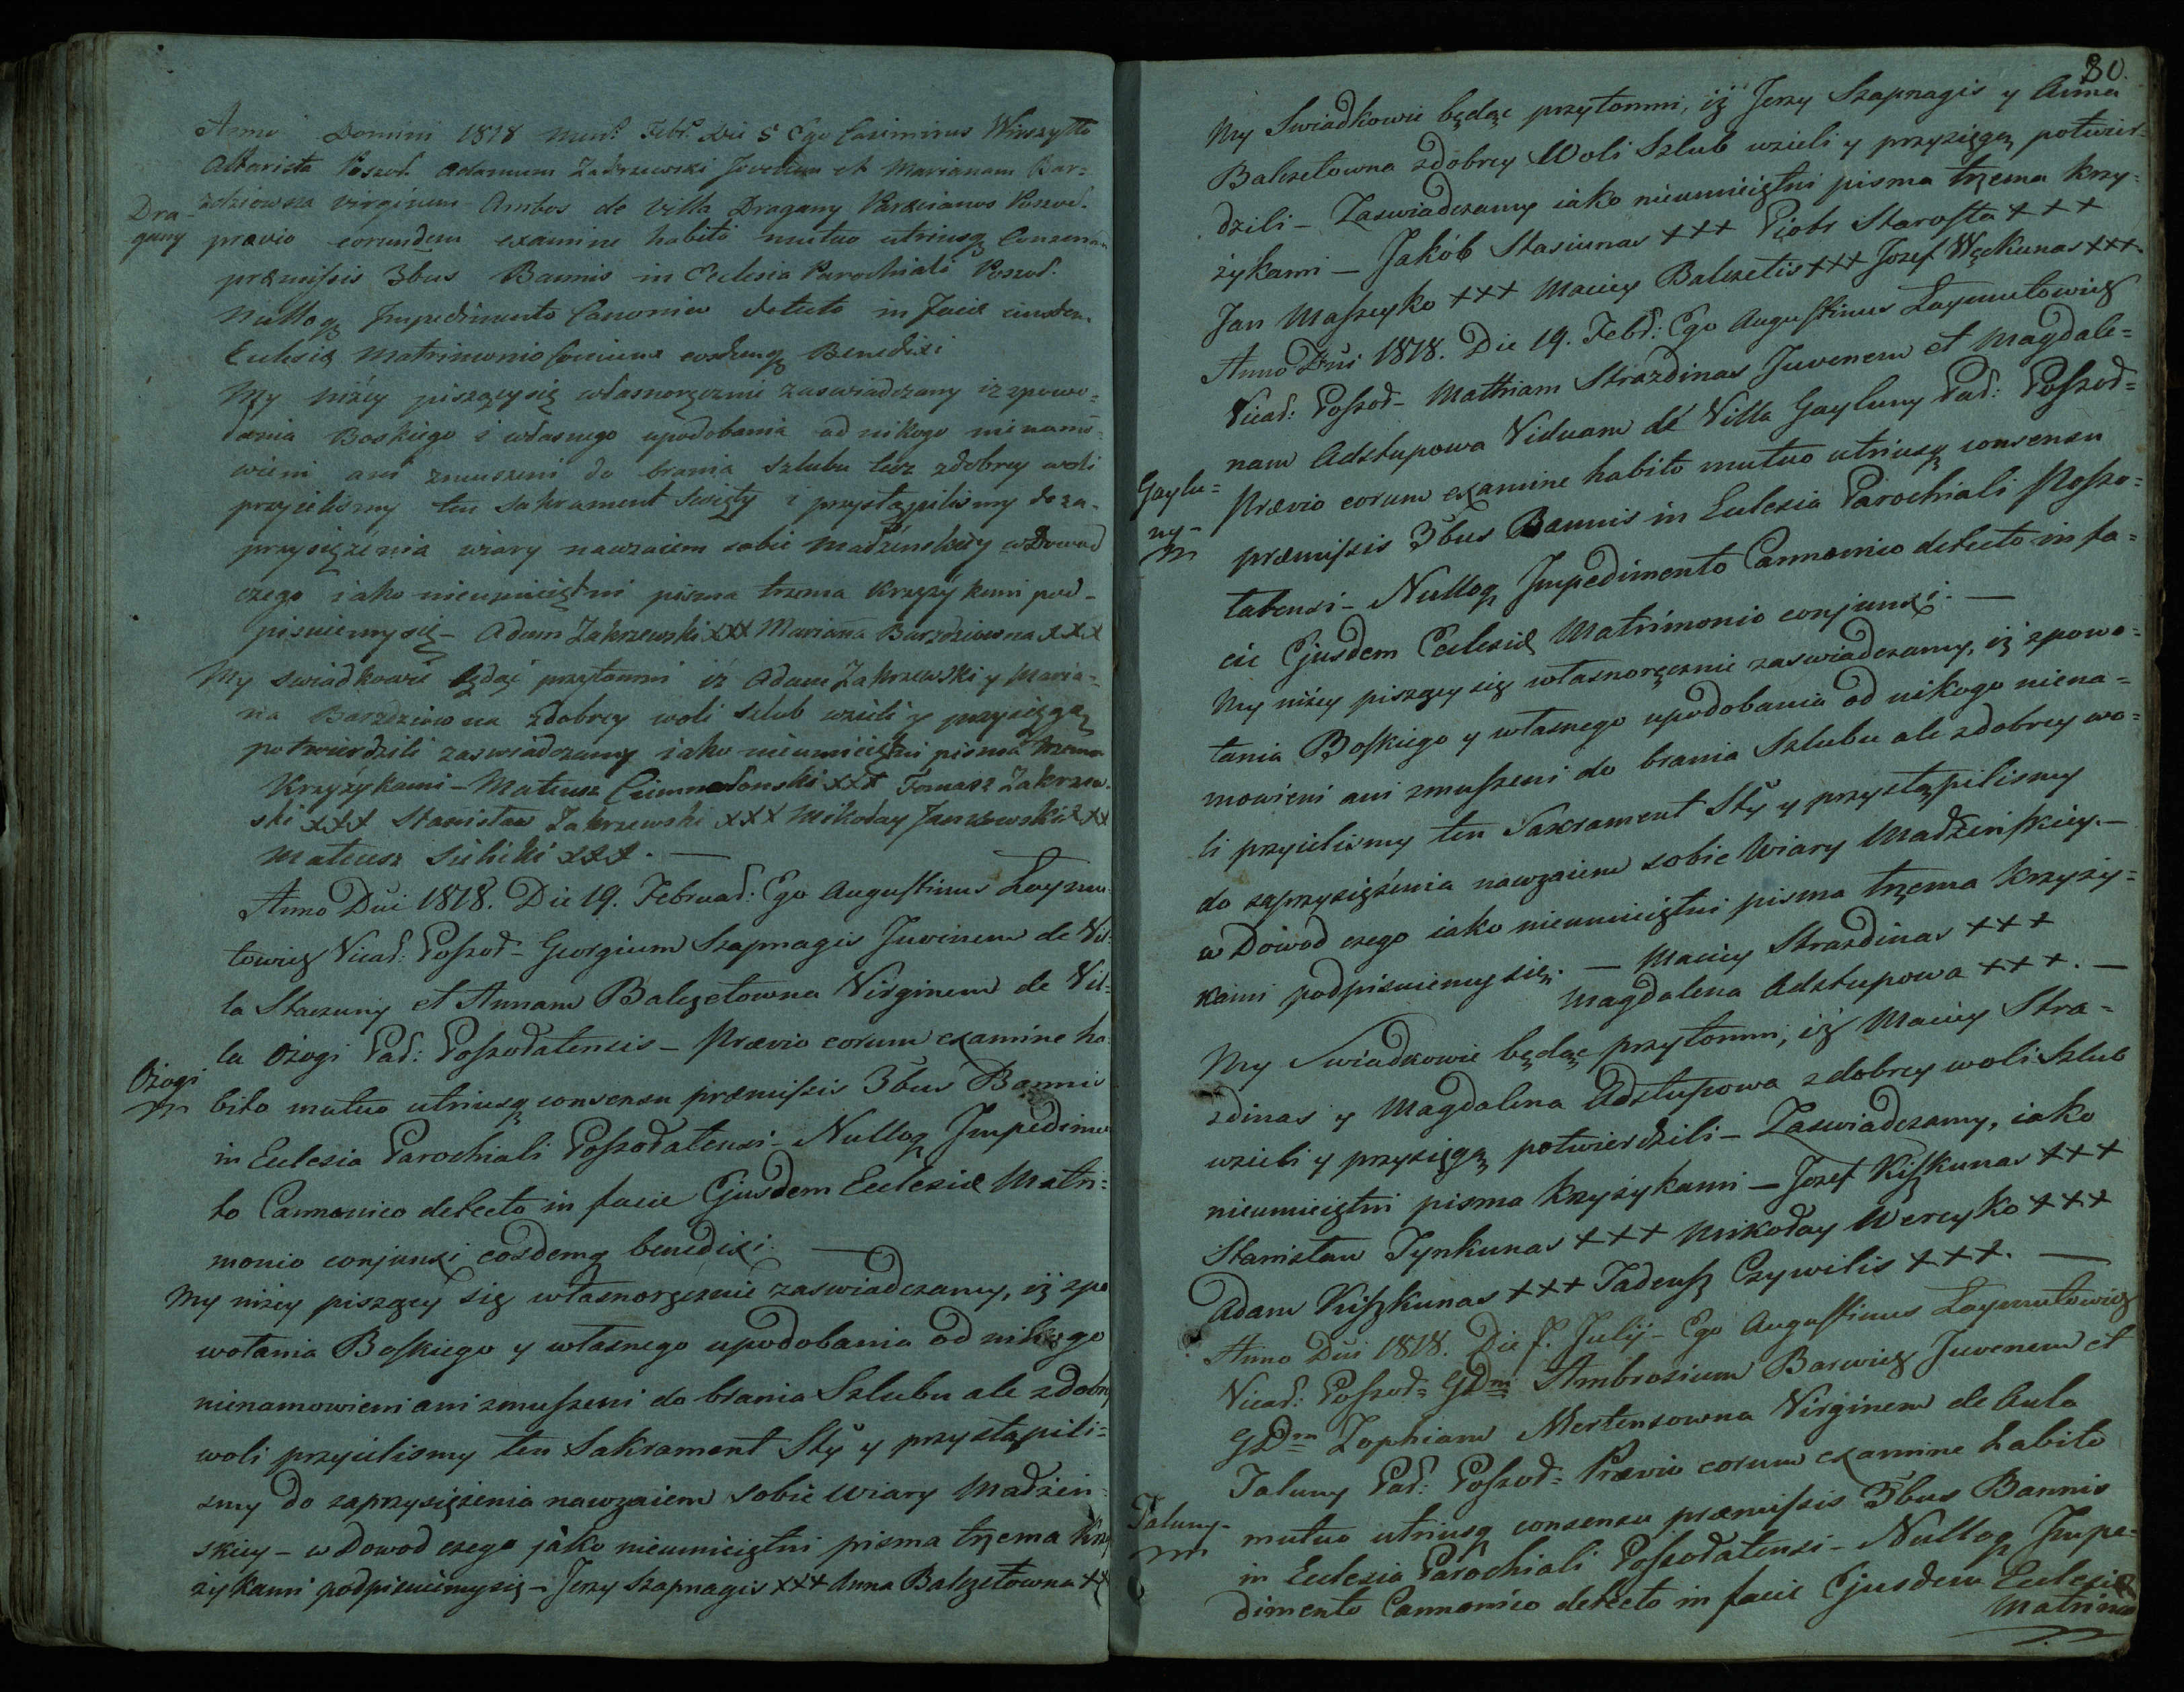 Anno Domini 1818 Mens: Febr. Die 5 Ego Casimirus Wirszyłło
Altarista Poszod. Adamum Zakrzewski Juvenem et Mariannam Bar=
Dra-
guny
zdziowna virginem Ambos de Villa Dragany Parocianos Poszod.
prævio eorundem examine habito mutuo utriusq Consensu
præmissis 3bus Bannis in Eclesia Parochiali Poszod.
Nulloq Impedimento Canonico detecto in facie eiusdem
Eclesiæ Matrimonio Coniunxi eosdemq Benedixi
My niżey piszący się własnoręcznie zaswiadczamy iz zpowo=
łania Boskiego i własnego upodobania od nikogo nienamo=
wieni ani zmuszeni do brania szlubu lecz zdobrey woli
przyielismy ten Sakrament Swięty i przystąpilismy do za-
przysiężenia wiary nawzaiem sobie Małżenskiey w Dowod
czego iako nieumieiętni pisma trzema krzyżykami pod-
pisuiemy się - Adam Zakrzewski xxx Marianna Barzdziowna xxx
My swiadkowie będąc przytomni iż Adam Zakrzewski y Maria-
na Barzdziowna zdobrey woli szlub wzieli y przysięgą
potwierdzili zaswiadczamy iako nieumieiętni pisma trzema
Krzyżykami - Mateusz xxx Tomasz Zakrzew-
ski xxx Stanisław Zakrzewski xxx Mikołay Jankowski xxx
Mateusz xxx. —
Anno Dni 1818. Die 19. Februar: Ego Augustinus Laymu-
towicz Vicar: Poszod- Georgium Szapnagis Juvenem de Vil=
la Staczuny et Annam Balczetowna Virginem de Vil=
la Ożogi Par: Poszodatensis - Prævio eorum examine ha-
Ożogi
bito mutuo utriusq consensu præmissis 3bus Bannis
in Eclesia Parochiali Poszodatensi - Nulloq Impedimen
to Cannonico detecto in facie Ejusdem Eclesiæ Matri=
monio conjunxi eosdemq benedixi. —
My niżey piszący się własnoręcznie zaswiadczamy, iż zpo
wołania Boskiego y własnego upodobania od nikogo
nienamowieni ani zmuszeni do brania Szlubu ale zdobrey
woli przyielismy ten Sakrament Sty y przystąpili=
smy do zaprzysiężenia nawzaiem sobie Wiary Małżen-
skiey - w Dowod czego jako nieumieiętni pisma trzema krzy
żykami podpisuiemy się - Jerzy Szapnagis xxx Anna Balczetowna xx
80.
My Swiadkowie będąc przytomni, iż Jerzy Szapnagis y Anna
Balczetowna zdobrey Woli Szlub wzieli y przysięgą potwier=
dzili - Zaswiadczamy iako nieumieiętni pisma trzema krzy=
żykami — Jakób Stasiunas +++ Piotr Starosta +++
Jan Maszeyko +++ Maciey Balczetis +++ Jozef Węckunas +++
Anno Dni 1818. Die 19. Febr: Ego Augustinus Laymutowicz
Vicar: Poszod- Mathiam Strazdinas Juvenem et Magdale=
nam Adstupowa Viduam de Villa Gayluny Par: Poszod=
Gaylu=
ny-
Prævio eorum examine habito mutuo utriusq consensu
præmissis 3bus Bannis in Eclesia Parochiali Poszo=
tatensi - Nulloq Impedimento Cannonico detecto in fa=
cie Ejusdem Eclesiæ Matrimonio conjunxi. —
My niżey piszący się własnoręcznie zaswiadczamy, iż zpowo=
łania Boskiego y własnego upodobania od nikogo niena=
mowieni ani zmuszeni do brania Szlubu ale zdobrey wo=
li przyielismy ten Saxrament Sty y przystąpilismy
do zaprzysiężenia nawzaiem sobie Wiary Małżeńskiey.—
w Dowod czego iako nieumieiętni pisma trzema krzyży=
kami podpisuiemy się. — Maciey Strazdinas +++
Magdalena Adstupowa +++. —
My Swiadkowie będąc przytomni, iż Maciey Stra=
zdinas y Magdalena Adstupowa zdobrey woli Szlub
wzieli y przysięgą potwierdzili - Zaswiadczamy, iako
nieumieiętni pisma krzyżykami — Jozef Kiszkunas +++
Stanisław Tynkunas +++ Mikołay Wereyko +++
Adam Kiszkunas +++ Tadeusz Czywilis +++. —
Anno Dni 1818. Die 7. Julij - Ego Augustinus Laymutowicz
Vicar: Poszod= GDm Ambrosium Barwicz Juvenem et
GDm Zophiam Mertensowna Virginem de Aula
Taluny Par: Poszod= Prævio eorum examine habito
Taluny-
mutuo utriusq consensu præmissis 3bus Bannis
in Eclesia Parochiali Poszodatensi - Nulloq Impe=
dimento Cannonico detecto in facie Ejusdem Eclesiæ
Matrimo